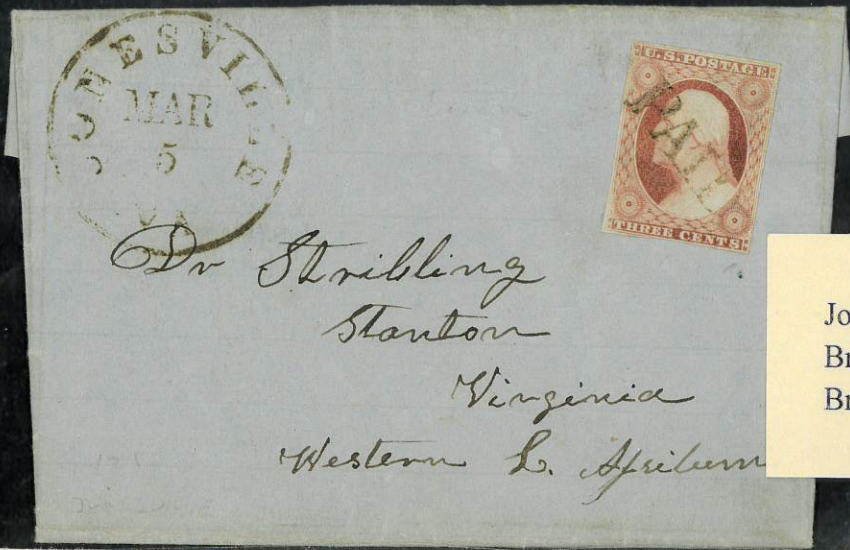 JONESVILLE
MAR
5
VA
U.S. POSTAGE
PAID
THREE CENTS
Dr Stribling
Stanton
Virginia
Western L. Asilum
Jo
Br
Br